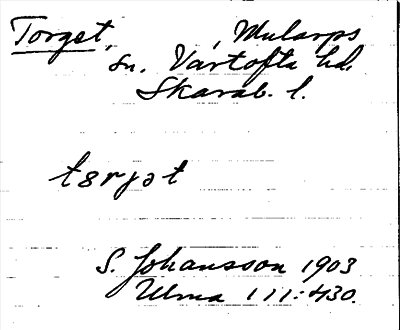 Torget, , Mularps
sn. Vartofta hd.
Skarab. l.
tɜrjət
S. Johansson 1903
Ulma 111:430.